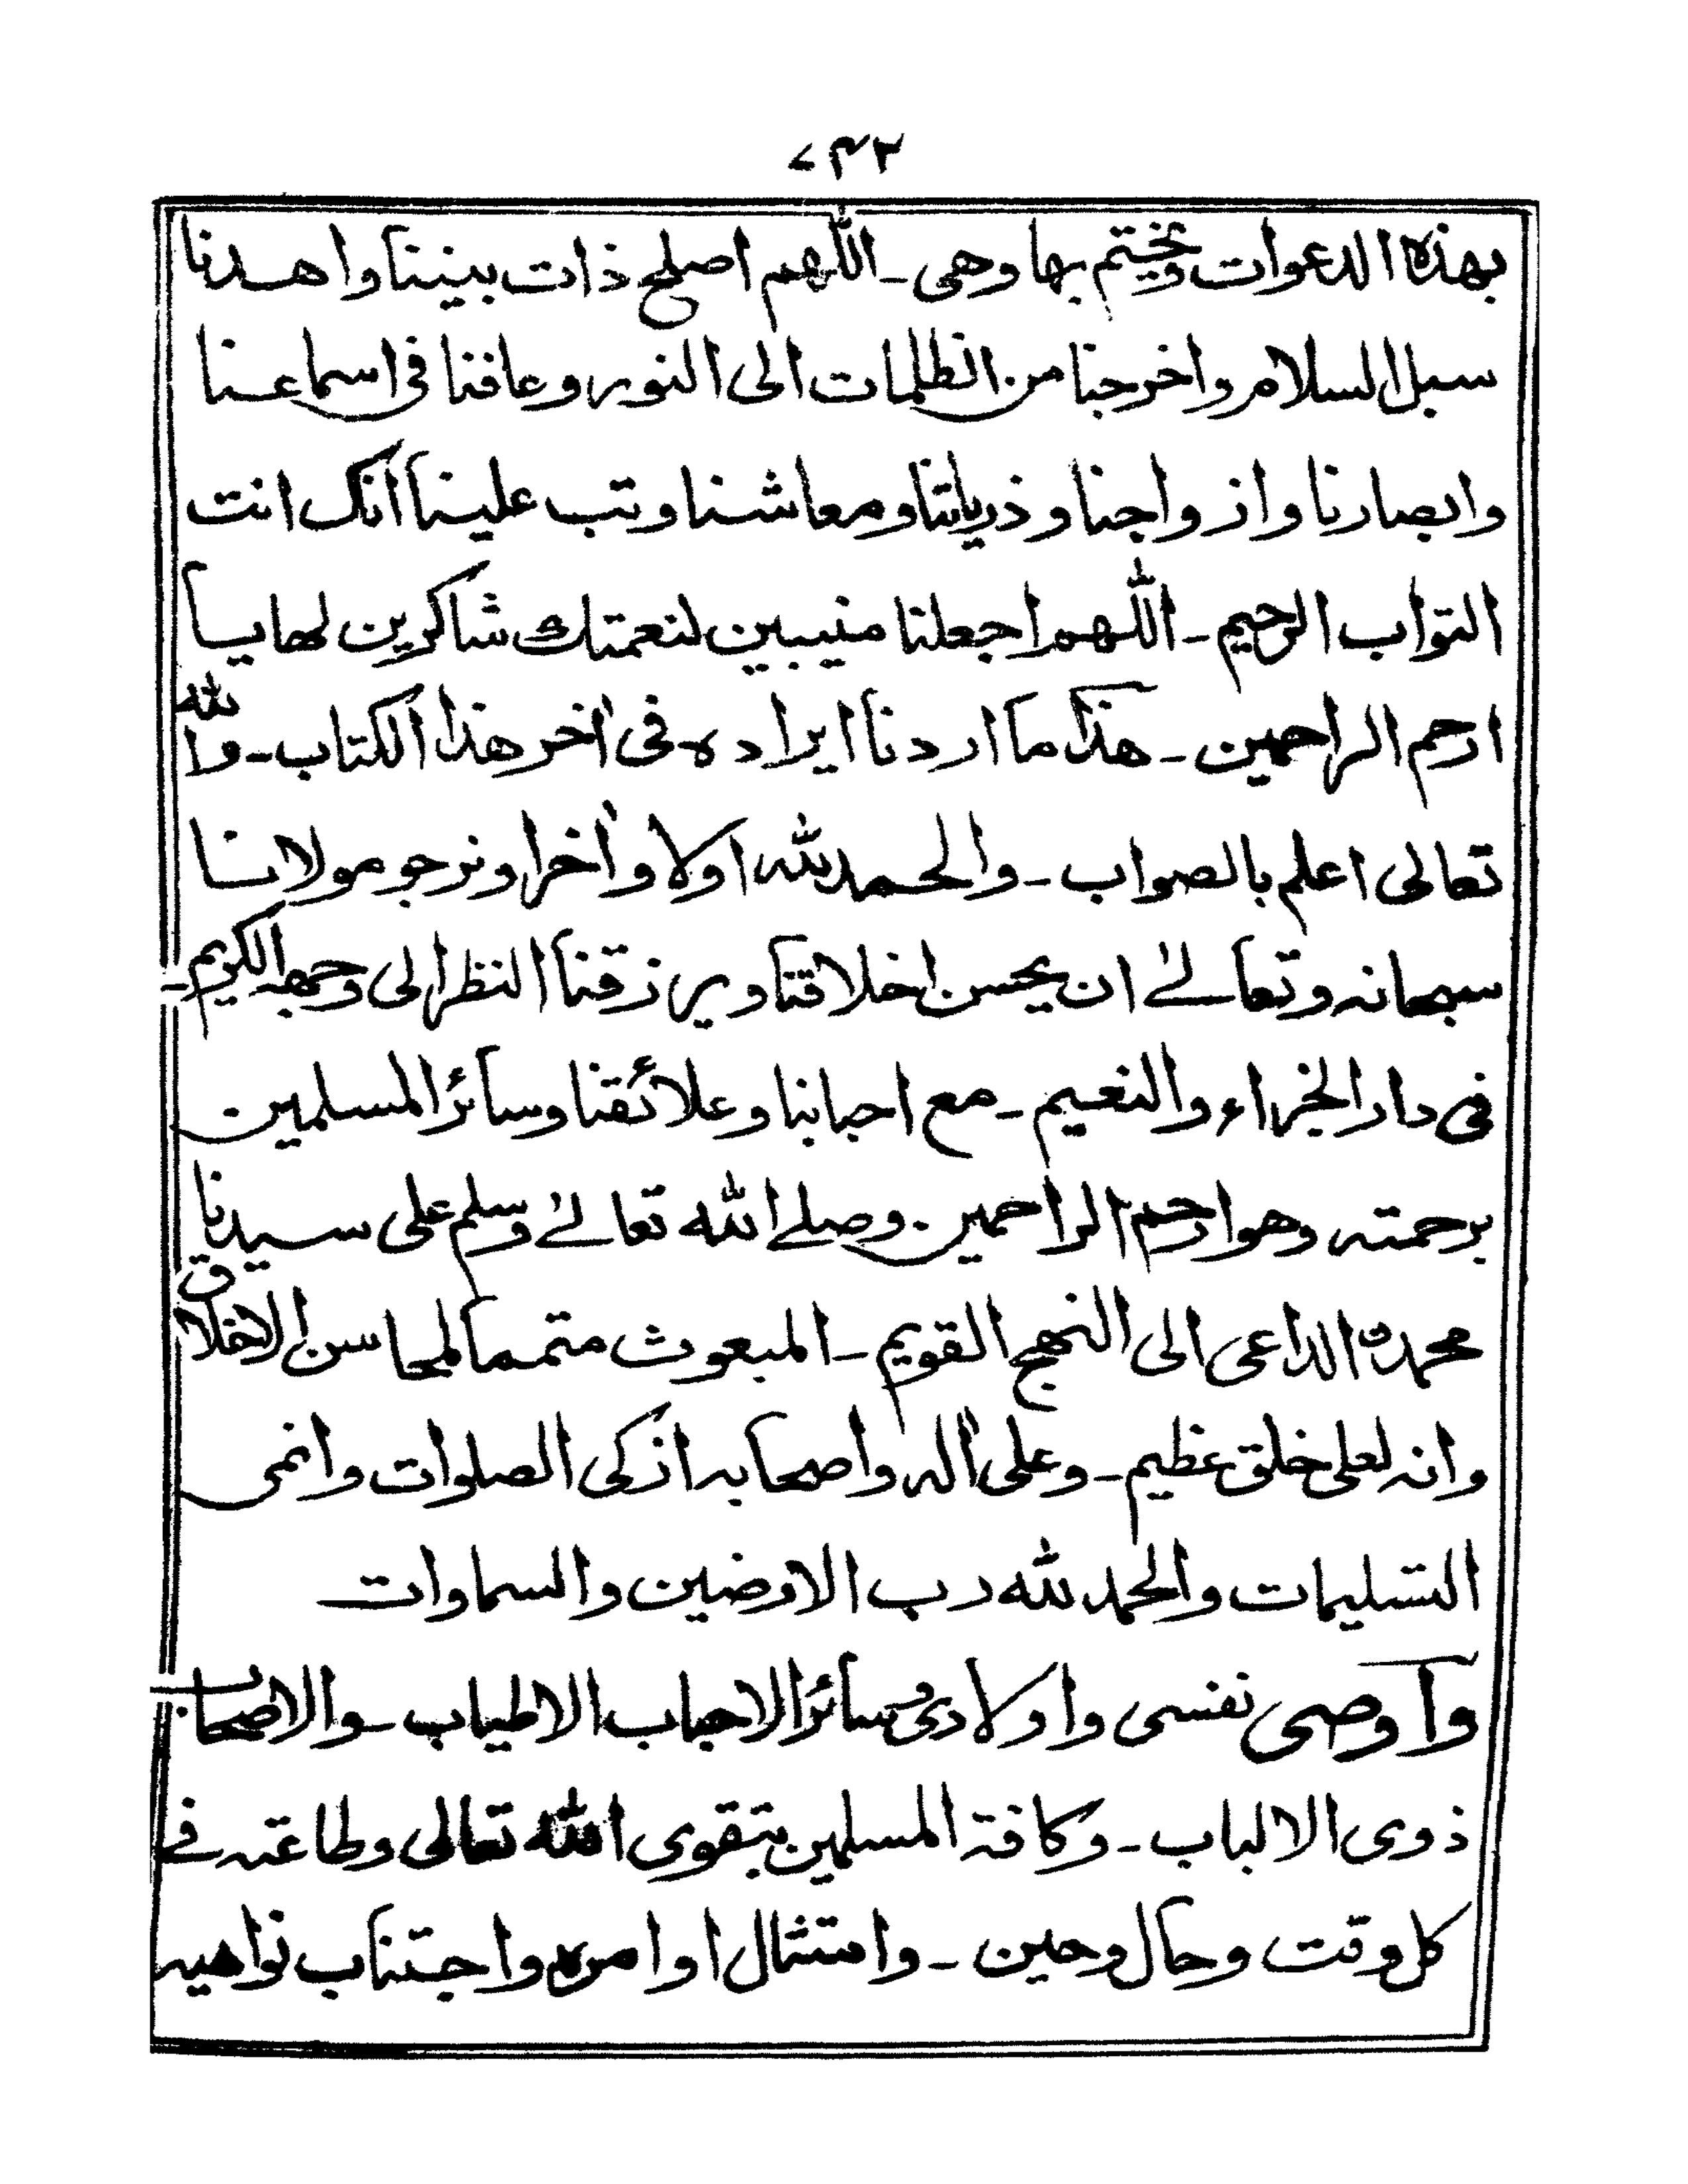 ٧٤٢
بهذه الدعوات ويختتم بها وهى ـ اللهم اصلح ذات بيننا واهدنا
سبل السلام واخرجنا من الظلمات الى النور وعافنا فى اسماعنا
وابصارنا وازواجنا وذرياتنا ومعاشنا وتب علينا انك انت
التواب الرحيم ـ اللهم اجعلنا منيبين لنعمتك شاكرين لها يا
ارحم الراحمين ـ هذا ما اردنا ايراده فى اٰخر هذا الكتاب ـ والله
تعالى اعلم بالصواب ـ والحمد لله اولا واٰخرا ونرجو مولانا
سبحانه وتعالےٰ ان يحسن اخلاقنا ويرزقنا النظر الى وجهه الكريم ـ
فى دار الجزاء والنعيم ـ مع احبابنا وعلائقنا وسائر المسلمين
برحمته وهو ارحم الراحمين ـ وصلے الله تعالےٰ وسلم على سيدنا
محمد ن الداعى الى النهج القويم ـ المبعوث متمما لمحاسن الاخلاق
وانه لعلى خلق عظيم ـ وعلى اٰله واصحابه ازكى الصلوات وانمى
التسليمات والحمد لله رب الارضين والسماوات
وأوصى نفسى واولادى وسائر الاحباب الاطياب ـ والاصحاب
ذوى الالباب ـ وكافة المسلمين بتقوى الله تعالى وطاعته فے
كل وقت وحال وحين ـ وامتثال اوامره واجتناب نواهيه